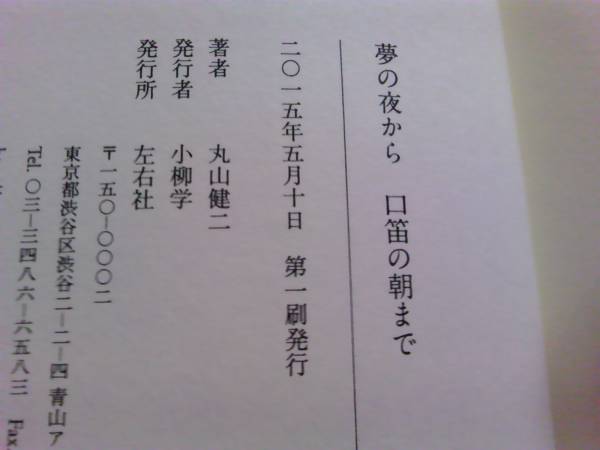 夢の夜から　口笛の朝まで
二〇一五年五月十日　第一刷発行
著者　丸山健二
発行者　小柳学
発行所　左右社
〒一五〇-〇〇〇二
東京都渋谷区渋谷二-二-四 青山ア
Tel. 〇三-三四八六-六五八三　Fax.